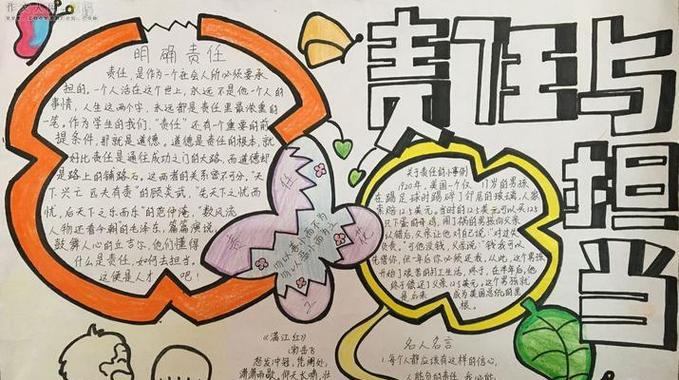 责任与担当
明确责任
责任,是作为一个社会人所必须要承
担的,一个人活在这个世上,永远不是他一个人的
事情,人生这两个字,永远都是责任里最浓重的
一笔。作为学生的我们,“责任”还有一个重要的前
提条件,那就是道德。道德是责任的根本,就
好比责任是通往成功之门的大路,而道德却
是路上的铺路石。这两者的关系密不可分,“天
下兴亡 匹夫有责”的顾炎武,“先天下之忧而
忧,后天下之乐而乐”的范仲淹,“数风流
人物还看今朝的毛泽东,篇篇演说,
鼓舞人心的丘吉尔,他们懂得
什么是责任,如何去担当,
这便是人才 吧!
关于责任的小事例
1920年,美国一个仅 11岁的男孩
在踢足球时踢碎了邻居的玻璃,人家
索赔12.5美元。当时的12.5美元可以买125
只下蛋的母鸡。闯了祸的男孩向父亲
认错后,父亲让他对自己
负责。可他没钱,父亲说:“钱我可以
先借你,但一年后你必须还我,从此,这个男孩
开始了艰苦的打工生活,终于,在半年后,他
终于偿还了父亲12.5美元。这个男孩就
是后来 成为美国总统的里
根。
责
任
《满江红》
岳飞
怒发冲冠,凭阑处,
潇潇雨歇,仰天长啸,壮
名人名言
1.每个人都应该有这样的信心,
人能负的责任,我必能